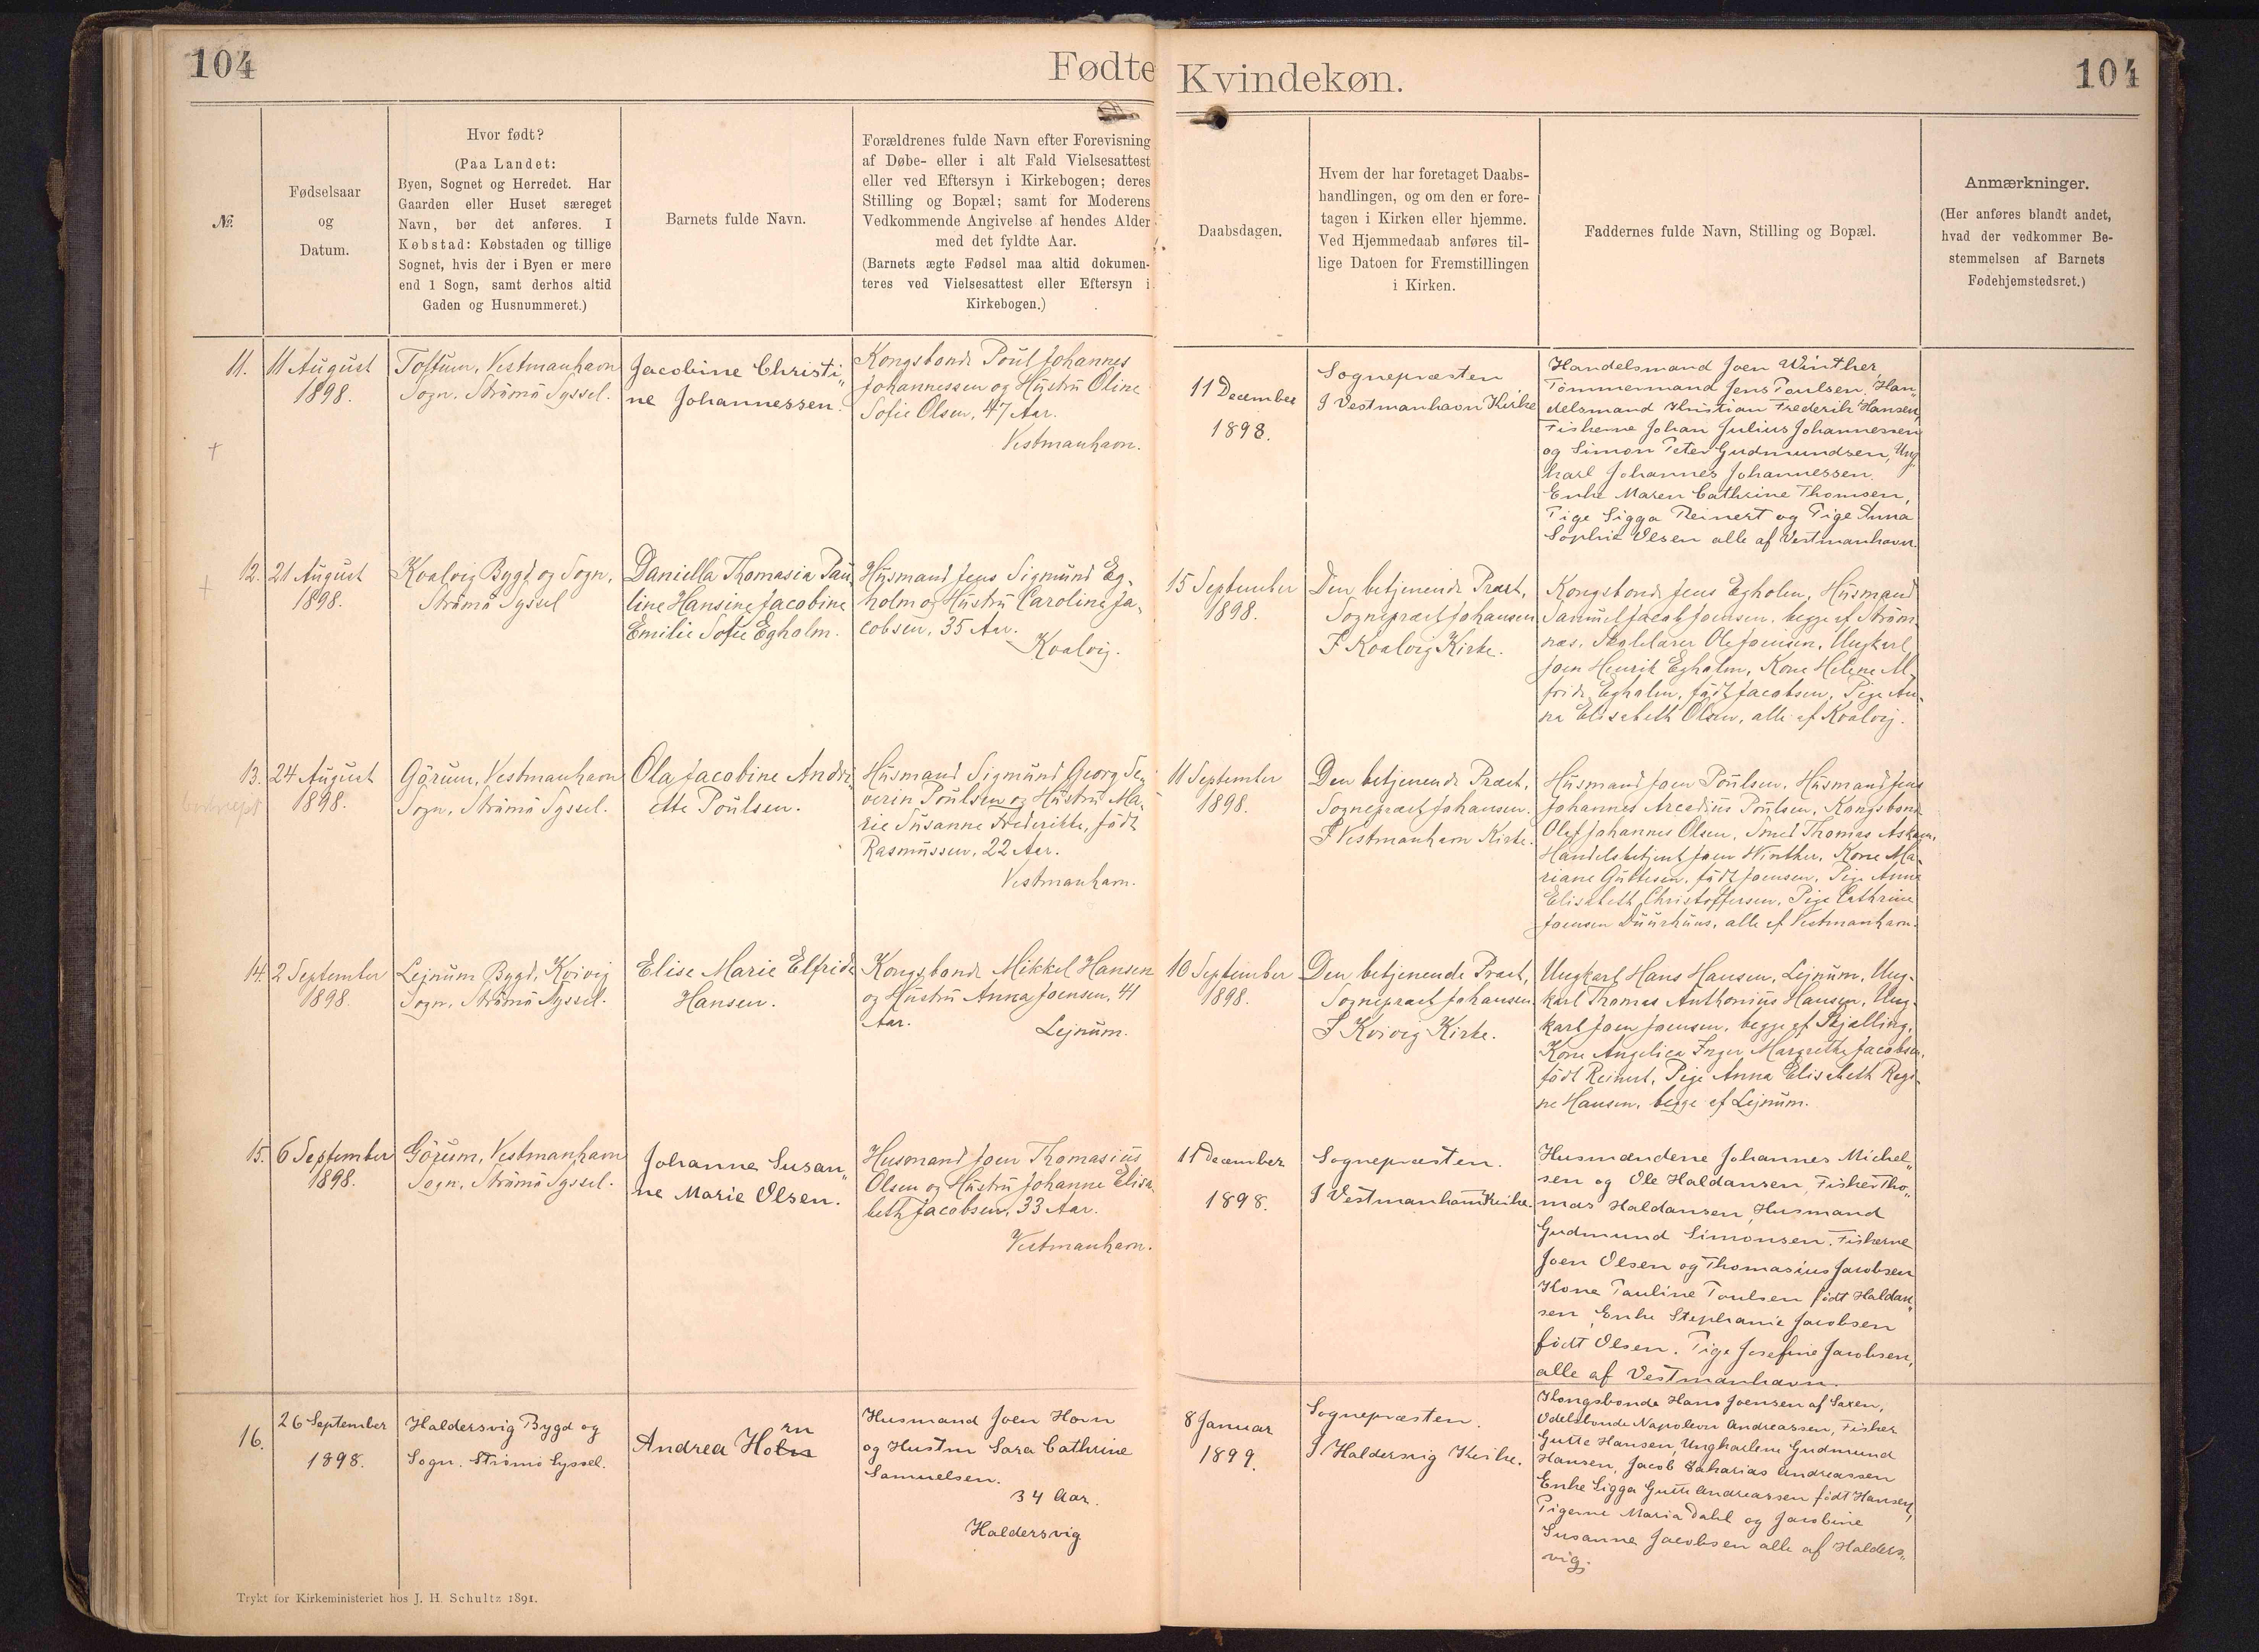 104
Fødte
Kvindekøn.
104
№
Fødselsaar
og
Datum.
Hvor født?
(Paa Landet:
Byen, Sognet og Herredet. Har
Gaarden eller Huset særeget
Navn, bør det anføres. I
Købstad: Købstaden og tillige
Sognet, hvis der i Byen er mere
end 1 Sogn, samt derhos altid
Gaden og Husnummeret.)
Barnets fulde Navn.
Forældrenes fulde Navn efter Forevisning
af Døbe- eller i alt Fald Vielsesattest
eller ved Eftersyn i Kirkebogen; deres
Stilling og Bopæl; samt for Moderens
Vedkommende Angivelse af hendes Alder
med det fyldte Aar.
(Barnets ægte Fødsel maa altid dokumen-
teres ved Vielsesattest eller Eftersyn i
Kirkebogen.)
Daabsdagen.
Hvem der har foretaget Daabs-
handlingen, og om den er fore-
tagen i Kirken eller hjemme.
Ved Hjemmedaab anføres til-
lige Datoen for Fremstillingen
i Kirken.
Faddernes fulde Navn, Stilling og Bopæl.
Anmærkninger.
(Her anføres blandt andet,
hvad der vedkommer Be-
stemmelsen af Barnets
Fødehjemstedsret.)
11.
11 August
1898.
Toftum, Vestmanhavn
Sogn, Strömö Syssel.
Jacobine Christi„
ne Johannessen.
Kongsbonde Poul Johannes
Johannessen og Hustru Oline
Sofie Olsen, 47 Aar.
Vestmanhavn.
11 December
1898.
Sognepræsten
I Vestmanhavn Kirke
Handelsmand Joen Winther,
Tömmermand Jens Poulsen, Han„
delsmand Khristian Frederik Hansen,
Fiskerne Johan Julius Johannessen
og Simon Peter Gudmundsen, Ung„
karl Johannes Johannessen.
Enke Maren Cathrine Thomsen,
Pige Sigga Reinert og Pige Anna
Sophie Olsen alle af Vestmanhavn.
+
12.
21 August
1898.
Kvalvig Bygd og Sogn,
Strömö Syssel
Daniella Thomasia Pau„
line Hansine Jacobine
Emilie Sofie Egholm.
Husmand Jens Sigmund Eg-
holm og Hustru Caroline Ja-
cobsen, 35 Aar.
Kvalvig.
15 September
1898.
Den betjenende Præst,
Sognepræst Johansen
I Kvalvig Kirke.
Kongsbonde Jens Egholm, Husmand
Samuel Jacob Joensen, begge af Ström-
næs, Skolelærer Ole Joensen, Ungkarl
Joen Henrik Egholm, Kone Helene Al-
fride Egholm, født Jacobsen, Pige An-
na Elisabeth Olsen, alle af Kvalvig.
+
13.
24 August
1898.
Görum, Vestmanhavn
Sogn, Strömö Syssel.
Ola Jacobine Andri„
ette Poulsen.
Husmand Sigmund Georg Se-
verin Poulsen og Hustru Ma-
rie Susanne Frederikke, født
Rasmussen, 22 Aar.
Vestmanhavn.
11 September
1898.
Den betjenende Præst,
Sognepræst Johansen.
I Vestmanhavn Kirke.
Husmand Joen Poulsen, Husmand Jens
Johannes Arcadius Poulsen, Kongsbond
Olef Johannes Olsen, Smed Thomas Askam,
Handelsbetjent Joen Winther, Kone Ma-
riane Guttesen, født Joensen, Pige Anna
Elisabeth Christoffersen, Pige Cathrine
Joensen Duurhuus, alle af Vestmanhavn.
14.
2 September
1898.
Lejnum Bygd, Kvivig
Sogn, Strömö Syssel.
Elise Marie Elfride
Hansen.
Kongsbonde Mikkel Hansen
og Hustru Anna Joensen, 41
Aar.
Lejnum.
10 September
1898.
Den betjenende Præst,
Sognepræst Johansen.
I Kvivig Kirke.
Ungkarl Hans Hansen, Lejnum, Ung-
karl Thomas Anthonius Hansen, Ung-
karl Joen Joensen, begge af Skjælling,
Kone Angelica Inger Margrethe Jacobsen,
født Reinert, Pige Anna Elisabeth Regi-
ne Hansen, begge af Lejnum.
15.
6 September
1898.
Görum, Vestmanhavn
Sogn, Strömö Syssel.
Johanne Susan„
ne Marie Olsen.
Husmand Joen Thomasius
Olsen og Hustru Johanne Elisa-
beth Jacobsen, 33 Aar.
Vestmanhavn.
11 December
1898.
Sognepræsten.
I Vestmanhavn Kirke.
Husmændene Johannes Michel„
sen og Ole Haldansen, Fisker Tho„
mas Haldansen, Husmand
Gudmund Simonsen. Fiskerne
Joen Olsen og Thomasius Jacobsen
Kone Pauline Poulsen født Haldan„
sen, Enke Stephanie Jacobsen
født Olsen. Pige Josefine Jacobsen,
alle af Vestmanhavn.
16.
26 September
1898.
Haldersvig Bygd og
Sogn. Strömö Syssel.
Andrea Hovn
Husmand Joen Hovn
og Hustru Sara Cathrine
Samuelsen.
34 Aar.
Haldersvig
8 Januar
1899.
Sognepræsten.
I Haldersvig Kirke.
Kongsbonde Hans Joensen af Saxen,
Odelsbonde Napoleon Andreassen, Fisker
Gutte Hansen, Ungkarlene Gudmund
Hansen, Jacob Zakarias Andreassen
Enke Sigga Gutte Andreassen født Hansen,
Pigerne Maria Dahl og Jacobine
Susanna Jacobsen alle af Halders„
vig.
Trykt for Kirkeministeriet hos J. H. Schultz 1891.